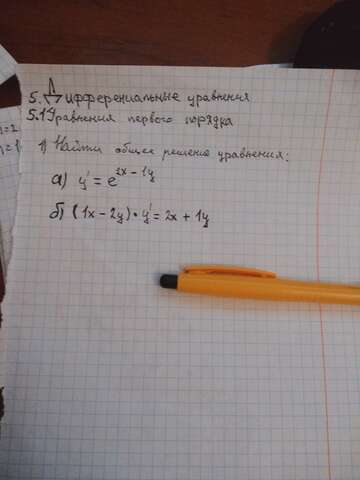 5. Дифференциальные уравнения
5.1 Уравнения первого порядка
1) Найти общее решение уравнения:
а) y' = e^{2x - 1y}
б) (1x - 2y) • y' = 2x + 1y